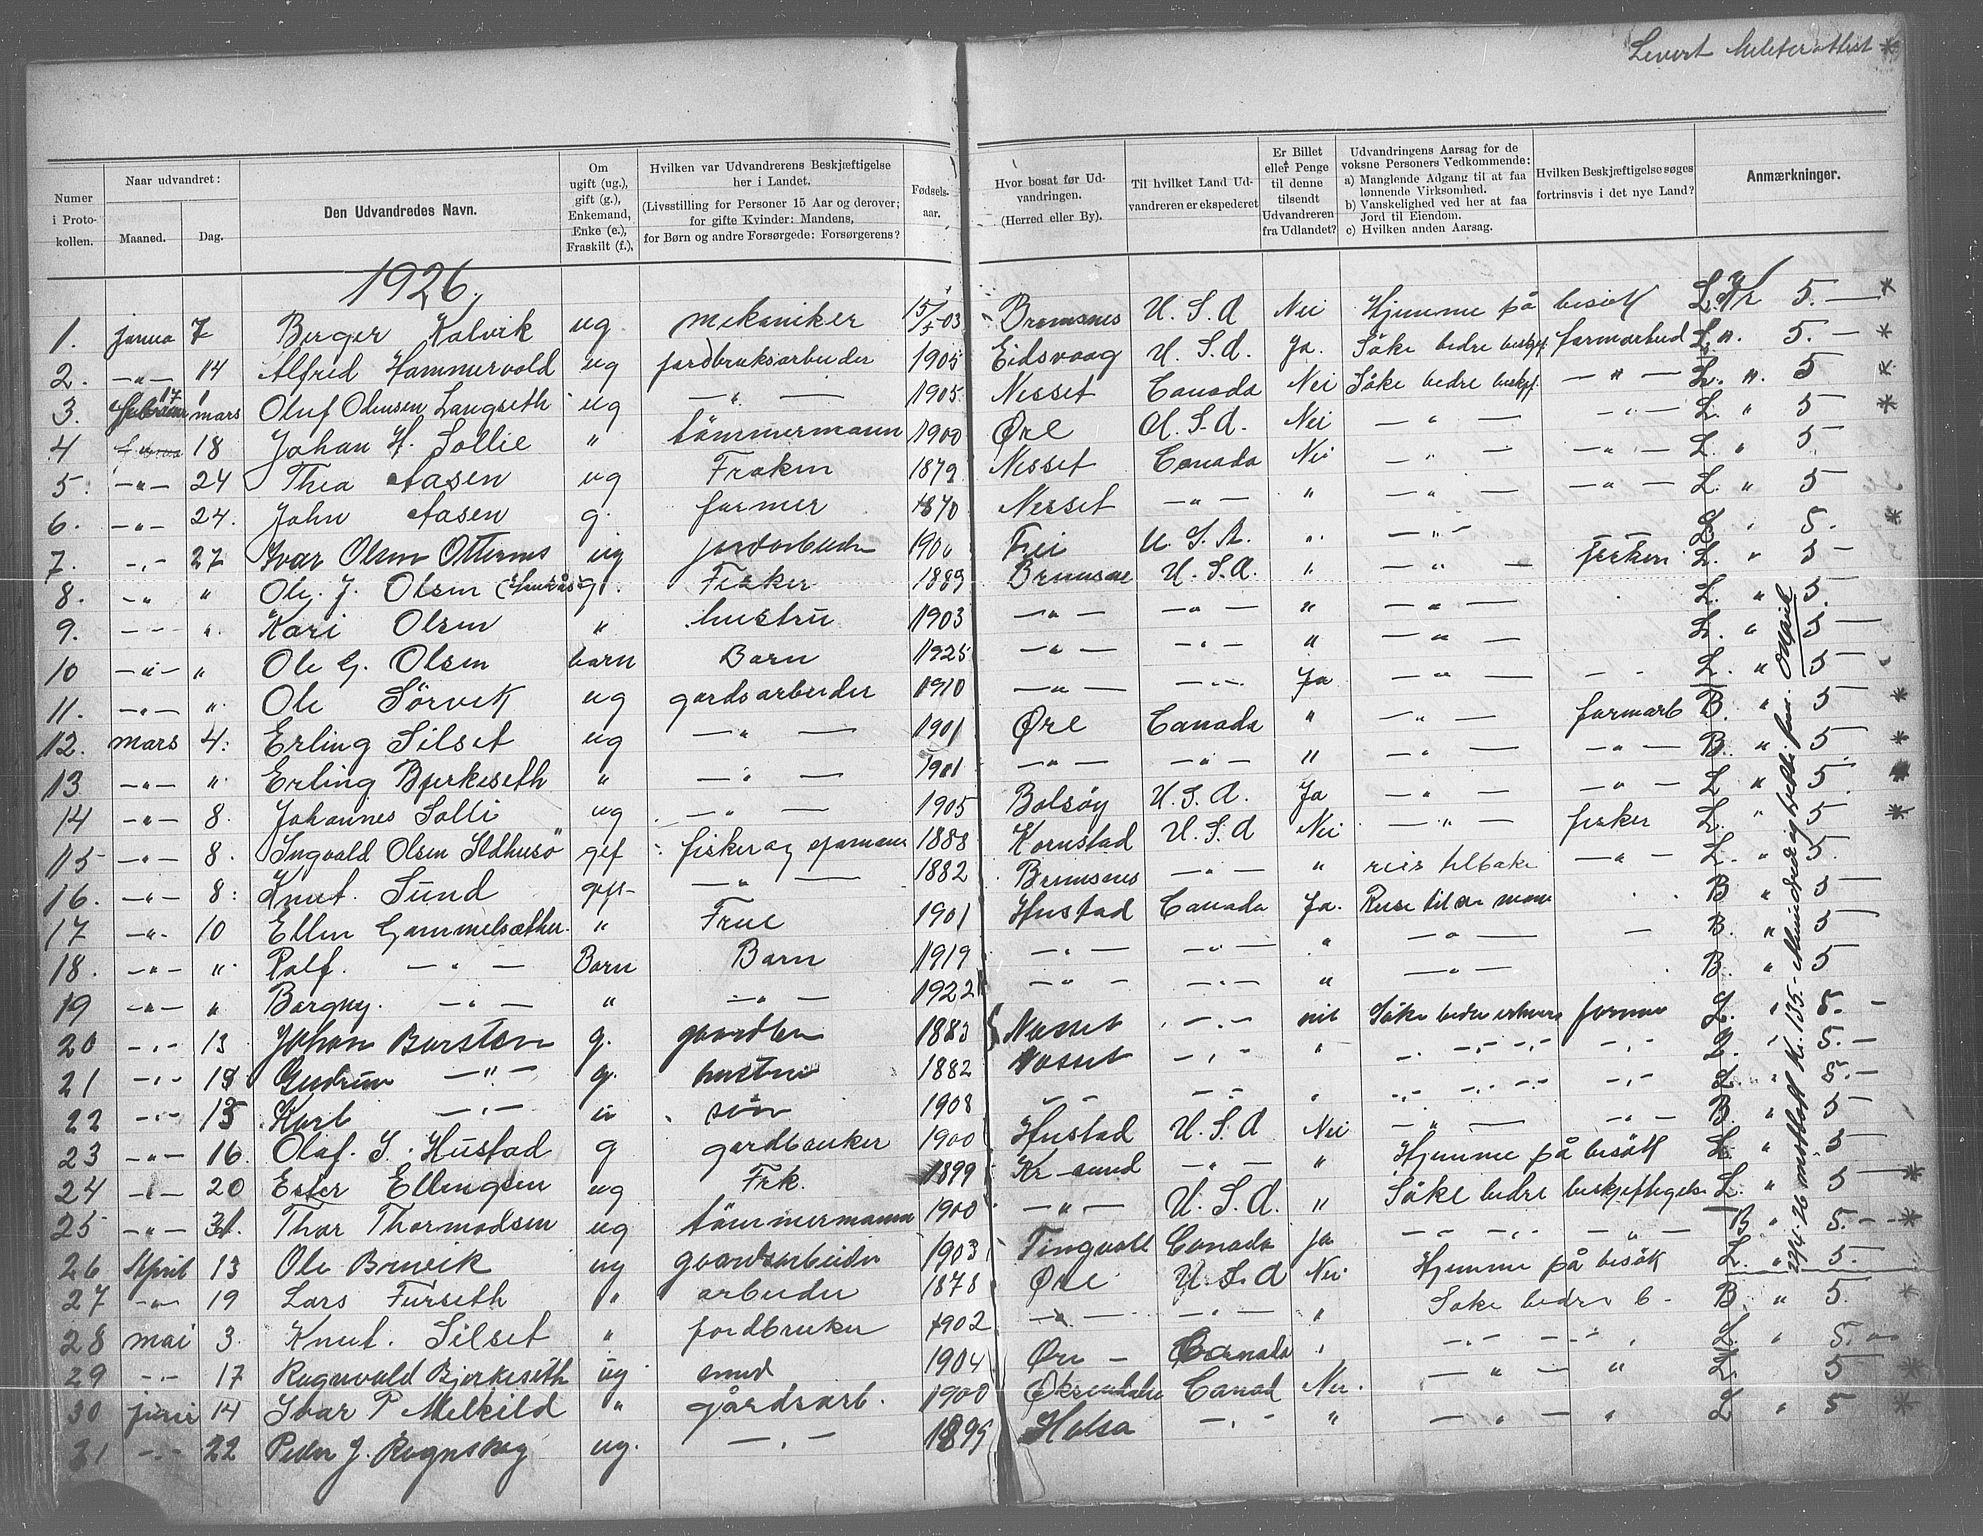 Levert Militerattest *
Numer i Protokollen.
Naar udvandret:
Maaned.
Dag.
Den Udvandredes Navn.
Om ugift (ug.), gift (g.), Enkemand, Enke (e.), Fraskilt (f.),
Hvilken var Udvandrerens Beskjæftigelse her i Landet.
(Livsstilling for Personer 15 Aar og derover; for gifte Kvinder: Mandens, for Børn og andre Forsørgede: Forsørgerens?
Fødselsaar.
Hvor bosat før Udvandringen.
(Herred eller By).
Til hvilket Land Udvandreren er ekspederet
Er Billet eller Penge til denne tilsendt Udvandreren fra Udlandet?
Udvandringens Aarsag for de voksne Personers Vedkommende:
a) Manglende Adgang til at faa lønnende Virksomhed.
b) Vanskelighed ved her at faa Jord til Eiendom.
c) Hvilken anden Aarsag.
Hvilken Beskjæftigelse søges fortrinsvis i det nye Land?
Anmærkninger.
1926.
1. janua 7 Berger Kalvik ug mekaniker 15/5 03 Bremsnes U. S. A Nei Hjemme på besøk L. Kr 5.— *
2. —"— 14 Alfred Hammervold ug jordbruksarbeider 1905 Eidsvaag U. S. A. Ja. Söke bedre beskjf. farmarbeid L. ". 5.— *
3. 17 mars Oluf Olausen Langseth ug —"— 1905. Nesset Canada Nei Söke bedre beskjf. —"— L. ". 5 *
4 18 Johan H. Sollie " tömmermann 1900 Øre U. S. A. Nei —"— —"— L. " 5 *
5. —"— 24 Thea Aasen ug Frøken 1879 Nesset Canada Nei —"— —"— L. " 5
6. —"— 24. John Aasen g. farmer 1870 Nesset —"— " —"— —"— L. " 5
7. —"— 27 Ivar Olsen Otternes ug jordarbeider Frei U. S. A. " —"— L " 5. *
8. —" " Ole. J. Olsen g. Fisker 1889 Bremsnes U. S. A. " —"— fiskeri L. " 5—
9. —"— " Kari Olsen " hustru 1903 —"— —"— " —"— L. " 5.
10 —"— " Ole G. Olsen barn Barn 1925 —"— —"— " —"— L. " 5
11. —"— " Ole Sörvik ug gardsarbeider 1910 —"— —"— Ja —"— L. " 5—
12. mars 4. Erling Silset ug —"— 1901 Øre Canada " —"— farmarb B. " 5 *
13 —"— " Erling Bjerkeseth " —"— 1901 —"— —"— " —"— —"— B. " 5 *
14 —"— 8. Johannes Solli ug —"— 1905 Bolsöy U. S. A. Ja —"— —"— L " 5. *
15 —"— 8. Ingvald Olsen Ildhusö gif fisker og 1888 Kornstad U. S. A Nei —"— fisker L. " 5 *
16. —"— 8. Knut. Sund gift —"— 1882 Bremsnes —"— " reis tilbake —"— L. " 5.
17 —"— 10 Ellen Gammelsæther. " Frue 1901 Hustad Canada Ja. Reise til sin mann B " 5—
18. —"— " Rolf. —"— Barn Barn 1919 —"— —"— " —"— — B. " 5
19 —"— " Borgny. —"— " —"— 1922 —"— —"— " —"— B. " 5
20 —"— 13 Johan Barsten g. gaardbr 1883 Nesset —"— nei Söke bedre erhverv farmer L. " 5.—
21 —"— 13 Gudrun —"— g. hustru 1882 Nesset —"— " —"— —"— L. " 5.—
22 —"— 15 Karl —"— " sön 1908 —"— —"— " —"— —"— L " 5.—
23 —"— 16. Olaf. S. Hustad g gardbruker 1900 Hustad U. S. A Nei —"— —"— B. " 5
24 —"— 20 Ester Ellingsen ug Frk. 1899 Kr-sund —"— " Hjemme på besök L. " 5
25 —"— 31. Thor Thormodsen ug tömmermann 1900 —"— U. S. A. " Söke bedre beskjeftigelse L. " 5 *
26 April 13 Ole Brevik ug gaardsarbeider 1903 Tingvoll Canada Ja —"— —"— B " 5.— *
27 —"— 19 Lars Furseth " arbeider 1878 Øre U. S. A Nei Hjemme på besök L. " 5.
28 mai 3. Knut. Silset " jordbruker 1902 —"— —"— " Söke bedre b- B. " 5. *
29 —"— 17 Ragnvald Bjerkeseth ug smed 1904 Øre — Canada " —"— " L. " 5.00
30 juni 14 Ivar P Melkild " gårdsarb. 1900 Øksendalen Canad Nei. —"— " L. " 5 *
31 —"— 22 Peder J. Rognskog ug. —"— 1899 Halsa —"— " —"— " L " 5 *
29/4-26 mottatt Kr. 135.-